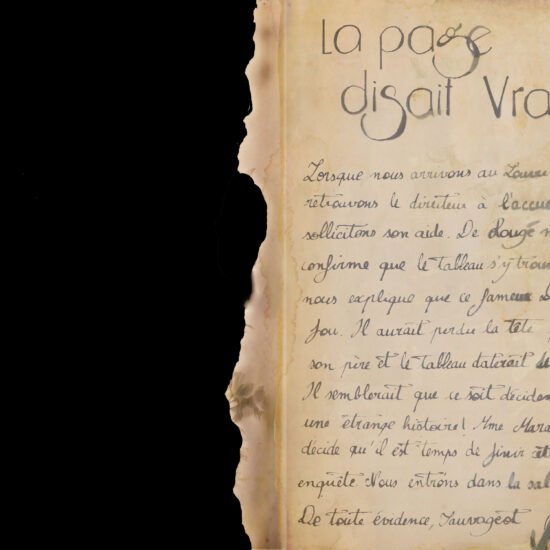 La page
disait Vra
Lorsque nous arrivons au Louv
retrouvons le directeur à l'accue
sollicitons son aide. De Rougé n
confirme que le tableau s'y trouv
nous explique que ce fameux
fou. Il aurait perdu la tête
son père et le tableau daterait de
Il semblerait que ce soit décidem
une étrange histoire! Mme Mara
décide qu'il est temps de finir cet
enquête. Nous entrons dans la sal
De toute évidence, Sauvageot